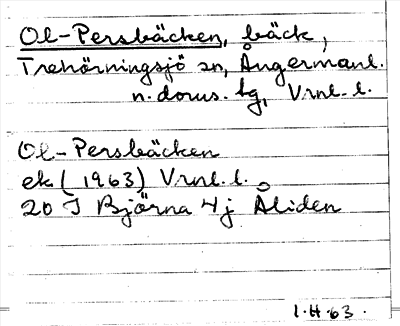 Ol-Persbäcken, bäck,
Trehörningsjö sn, Ångermanl.
n. doms. tg, Vrnl. l.
Ol-Persbäcken
ek. (1963) Vrnl. l.
20 J Björna 4j Åliden
1.H.63.